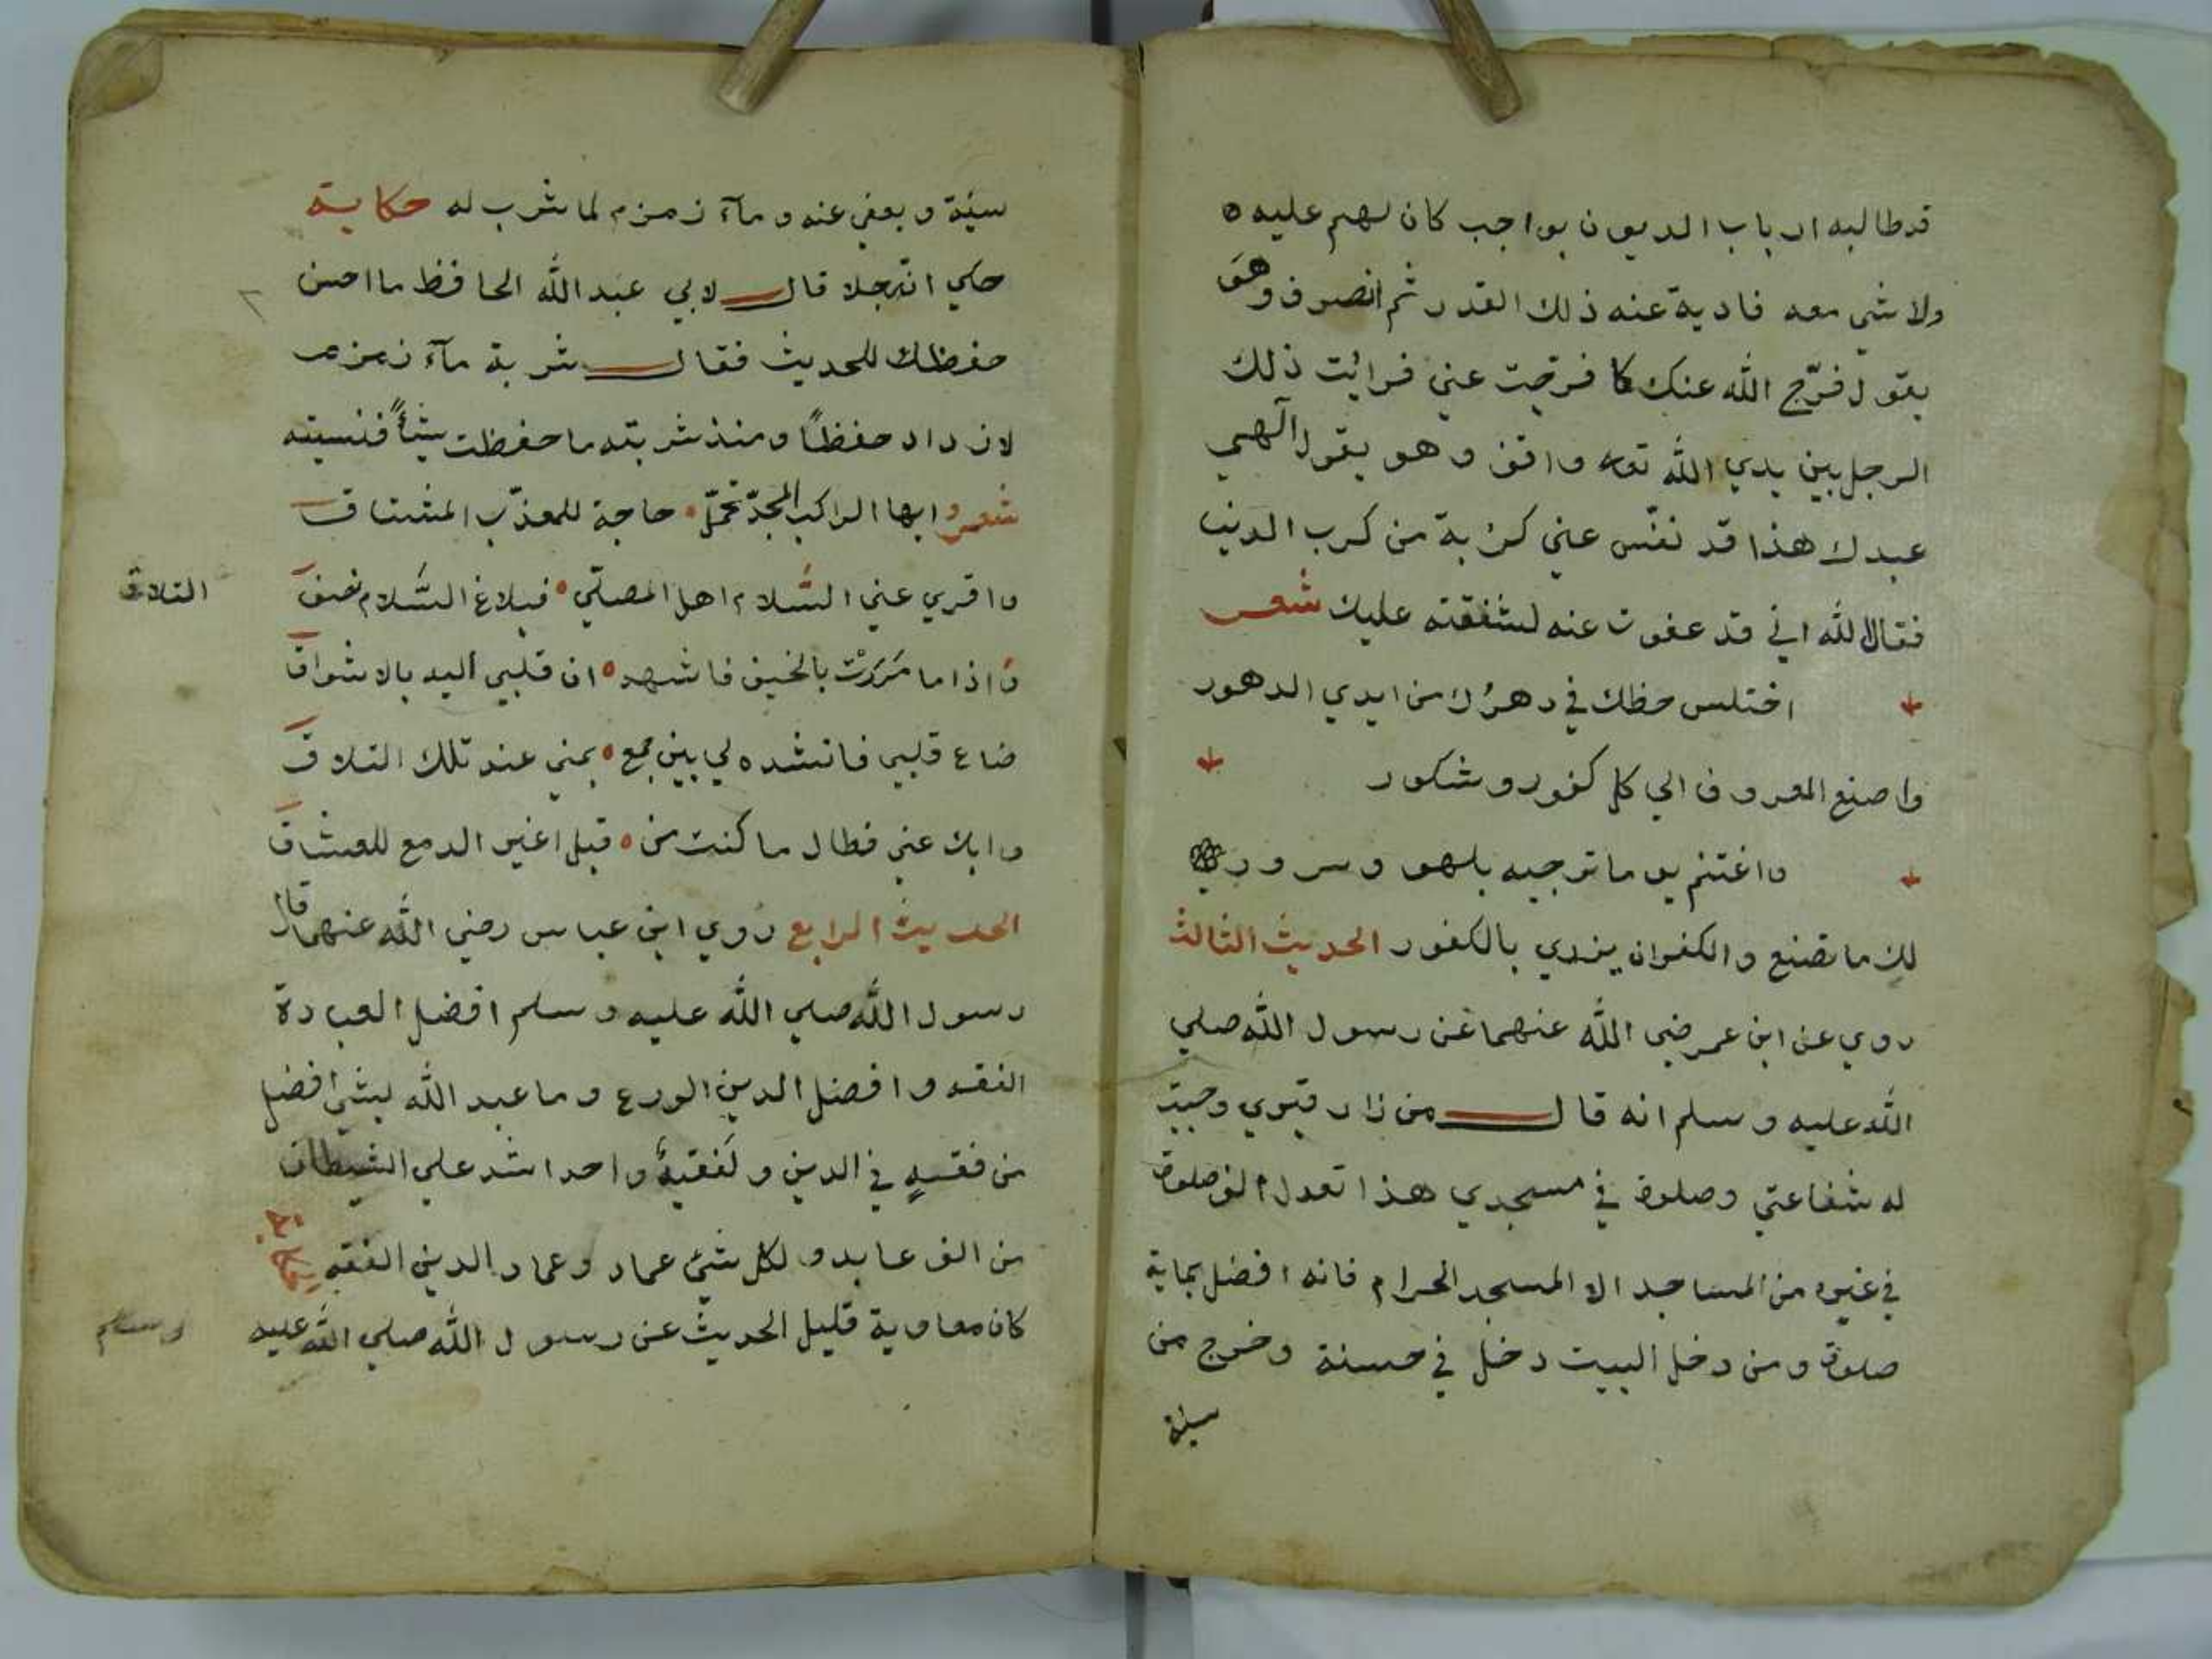 قد طالبه ارباب الديون بواجب كان لهم عليه ه
ولا شي معه فادية عنه ذلك القدر ثم انصرف وهو
يقول فرّج الله عنك كما فرجت عني فرائت ذلك
الرجل بين يدي الله تعه واقف وهو يقول الهي
عبدك هذا قد نفّس عني كربة من كرب الدنيا
فقال الله اني قد عفوت عنه لشفقته عليك شعر
اختلس حظك في دهرك من ايدي الدهور
واصنع المعروف الي كل كفور وشكور
واغتنم يوما ترجيه بلهو وسرور
لك ما تصنع والكفران يزري بالكفور الحديث الثالث
روي عن ابن عمر رضي الله عنهما عن رسول الله صلي
الله عليه وسلم انه قال من زار قبري وجبت
له شفاعتي وصلوة في مسجدي هذا تعدل الف صلوة
في غيره من المساجد الا المسجد الحرام فانه افضل بماية
صلوة ومن دخل البيت دخل في حسنة وخرج من
سيئة
سيئة ويعفي عنه وماء زمزم لما شرب له حكاية
حكي ان رجلا قال لابي عبد الله الحافظ ما احسن
حفظك للحديث فقال شربة ماء زمزم
لازداد حفظاً ومنذ شربته ما حفظت شيأً فنسيته
شعر وايها الراكب المجدّ تحمّل حاجة للمعذّب المشتاق
واقري عني السّلام اهل المصلّي فبلاغ السّلام نصف
التلاق
واذا ما مَرَرْت بالخيف فاشهد ان قلبي اليه بالاشواق
ضاع قلبي فانشده لي بين جمع بمني عند تلك التلاق
وابك عني فطال ما كنت من قبل اعير الدمع للعشاق
الحديث الرابع روي ابن عباس رضي الله عنهما قال
رسول الله صلي الله عليه وسلم افضل العبادة
الفقه وافضل الدين الورع وما عبد الله بشئ افضل
من فقهٍ في الدين ولَفقيهٌ واحد اشد علي الشيطان
من الف عابد ولكل شئ عماد وعماد الدين الفقه حكاية
كان معاوية قليل الحديث عن رسول الله صلي الله عليه
وسلم